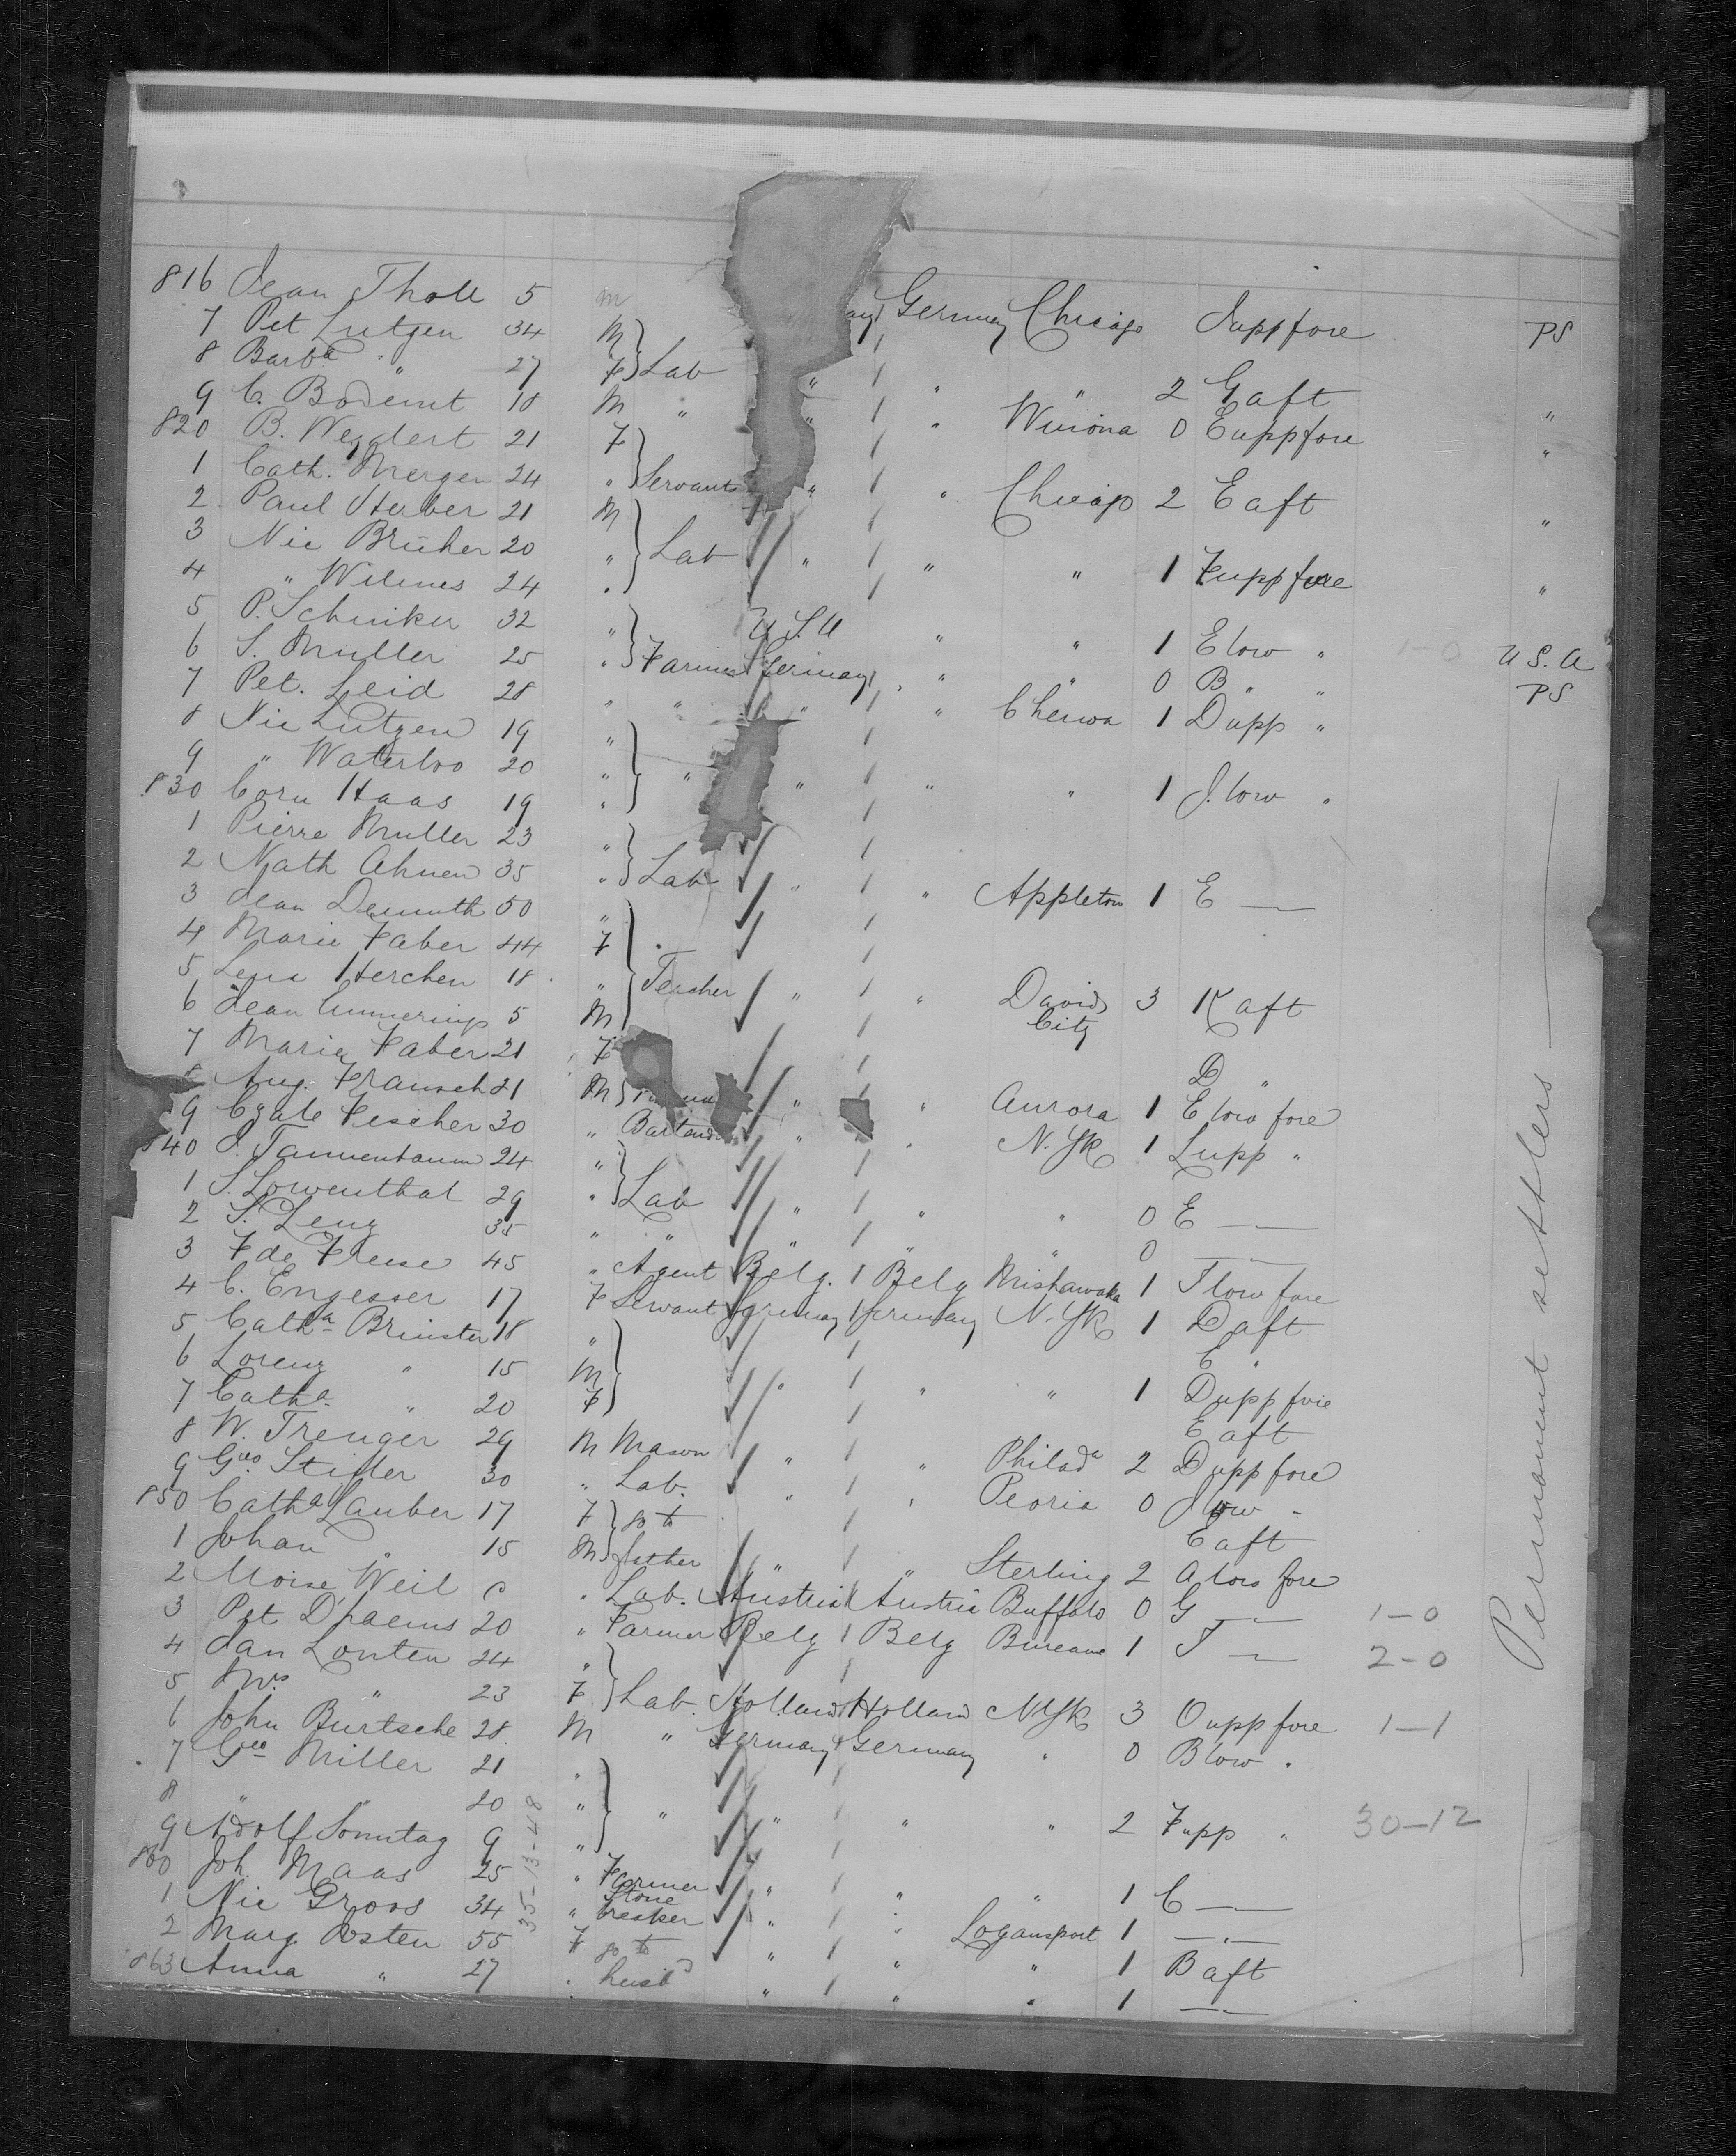 816 Jean Tholl 5 m Germany Chicago J upp fore PS
7 Pet Lutgen 34 M
8 Barba " 27 F } Lab " 1 " " 2 G aft "
9 C. Bodemt 18 M " " 1 " Winona 0 E upp fore "
820 B. Weydert 21 F
1 Cath. Mergen 24 " } Servants " 1 " Chicago 2 E aft "
2 Paul Huber 21 M
3 Nic Brücher 20 " } Lab " 1 " " 1 F upp fore "
4 " Wilmes 24 "
5 P. Schinker 32 " U.S.A " " 1 E low " 1-0 U.S.A
6 S. Muller 25 " } Farmer Germany 1 " " 0 B " " PS
7 Pet. Leid 28 " " " 1 " Chenoa 1 D upp "
8 Nic Lutgen 19 "
9 " Waterloo 20 " } " " 1 " " 1 J. low "
830 Corn Haas 19 "
1 Pierre Muller 23 "
2 Math Ahnen 35 " } Lab " 1 " Appleton 1 E —
3 Jean Demuth 50 "
4 Marie Faber 44 F
5 Lena Herchen 18 " } Teacher " 1 " David City 3 K aft
6 Jean 5 M
7 Maria Faber 21 F D "
8 Aug. Frausch 21 M " 1 " Aurora 1 E low fore
9 Fescher 30 " " " N. Yk 1 L upp "
840 J. Tannenbaum 24 "
1 S. Lowenthal 29 " } Lab " 1 " " 0 E —
2 S. Leng 35 " " " 1 " " 0 —
3 F de Freese 45 " Agent Belg. 1 Belg Mishawaka 1 T low fore
4 C. Engesser 17 F Servant Germany 1 Germany N. Yk 1 D aft
5 Catha Brinster 18 " E "
6 Lorenz " 15 M } " 1 " " 1 D upp fore
7 Catha " 20 F E aft
8 W. Trenger 29 M Mason " 1 " Philada 2 D upp fore
9 Geo Stifler 30 " Lab. " " Peoria 0 J low "
850 Catha Lauber 17 F } go to E aft
1 Johan " 15 M father " 1 " Sterling 2 A low fore
2 Moise Weil " Lab. Austria 1 Austria Buffalo 0 G — 1-0
3 Pet D'haems 20 " Farmer Belg 1 Belg 1 T — 2-0
4 Jan Lonten 24 "
5 Mrs " 23 F } Lab. Holland Holland N Yk 3 O upp fore 1-1
6 John Burtsche 28 M " Germany Germany " 0 B low "
7 Geo Miller 21 "
8 " " 20 " } " " " " 2 F upp " 30-12
9 Adolf Sonntag 9 "
860 Joh. Maas 25 " Farmer " 1 " " 1 C —
1 Nic Groos 34 " Stone breaker " 1 " Logansport 1 —
2 Marg Osten 55 F go to " 1 " " 1 B aft
863 Anna " 27 " husbd " 1 " " 1 —
35-13-48
Permanent settlers